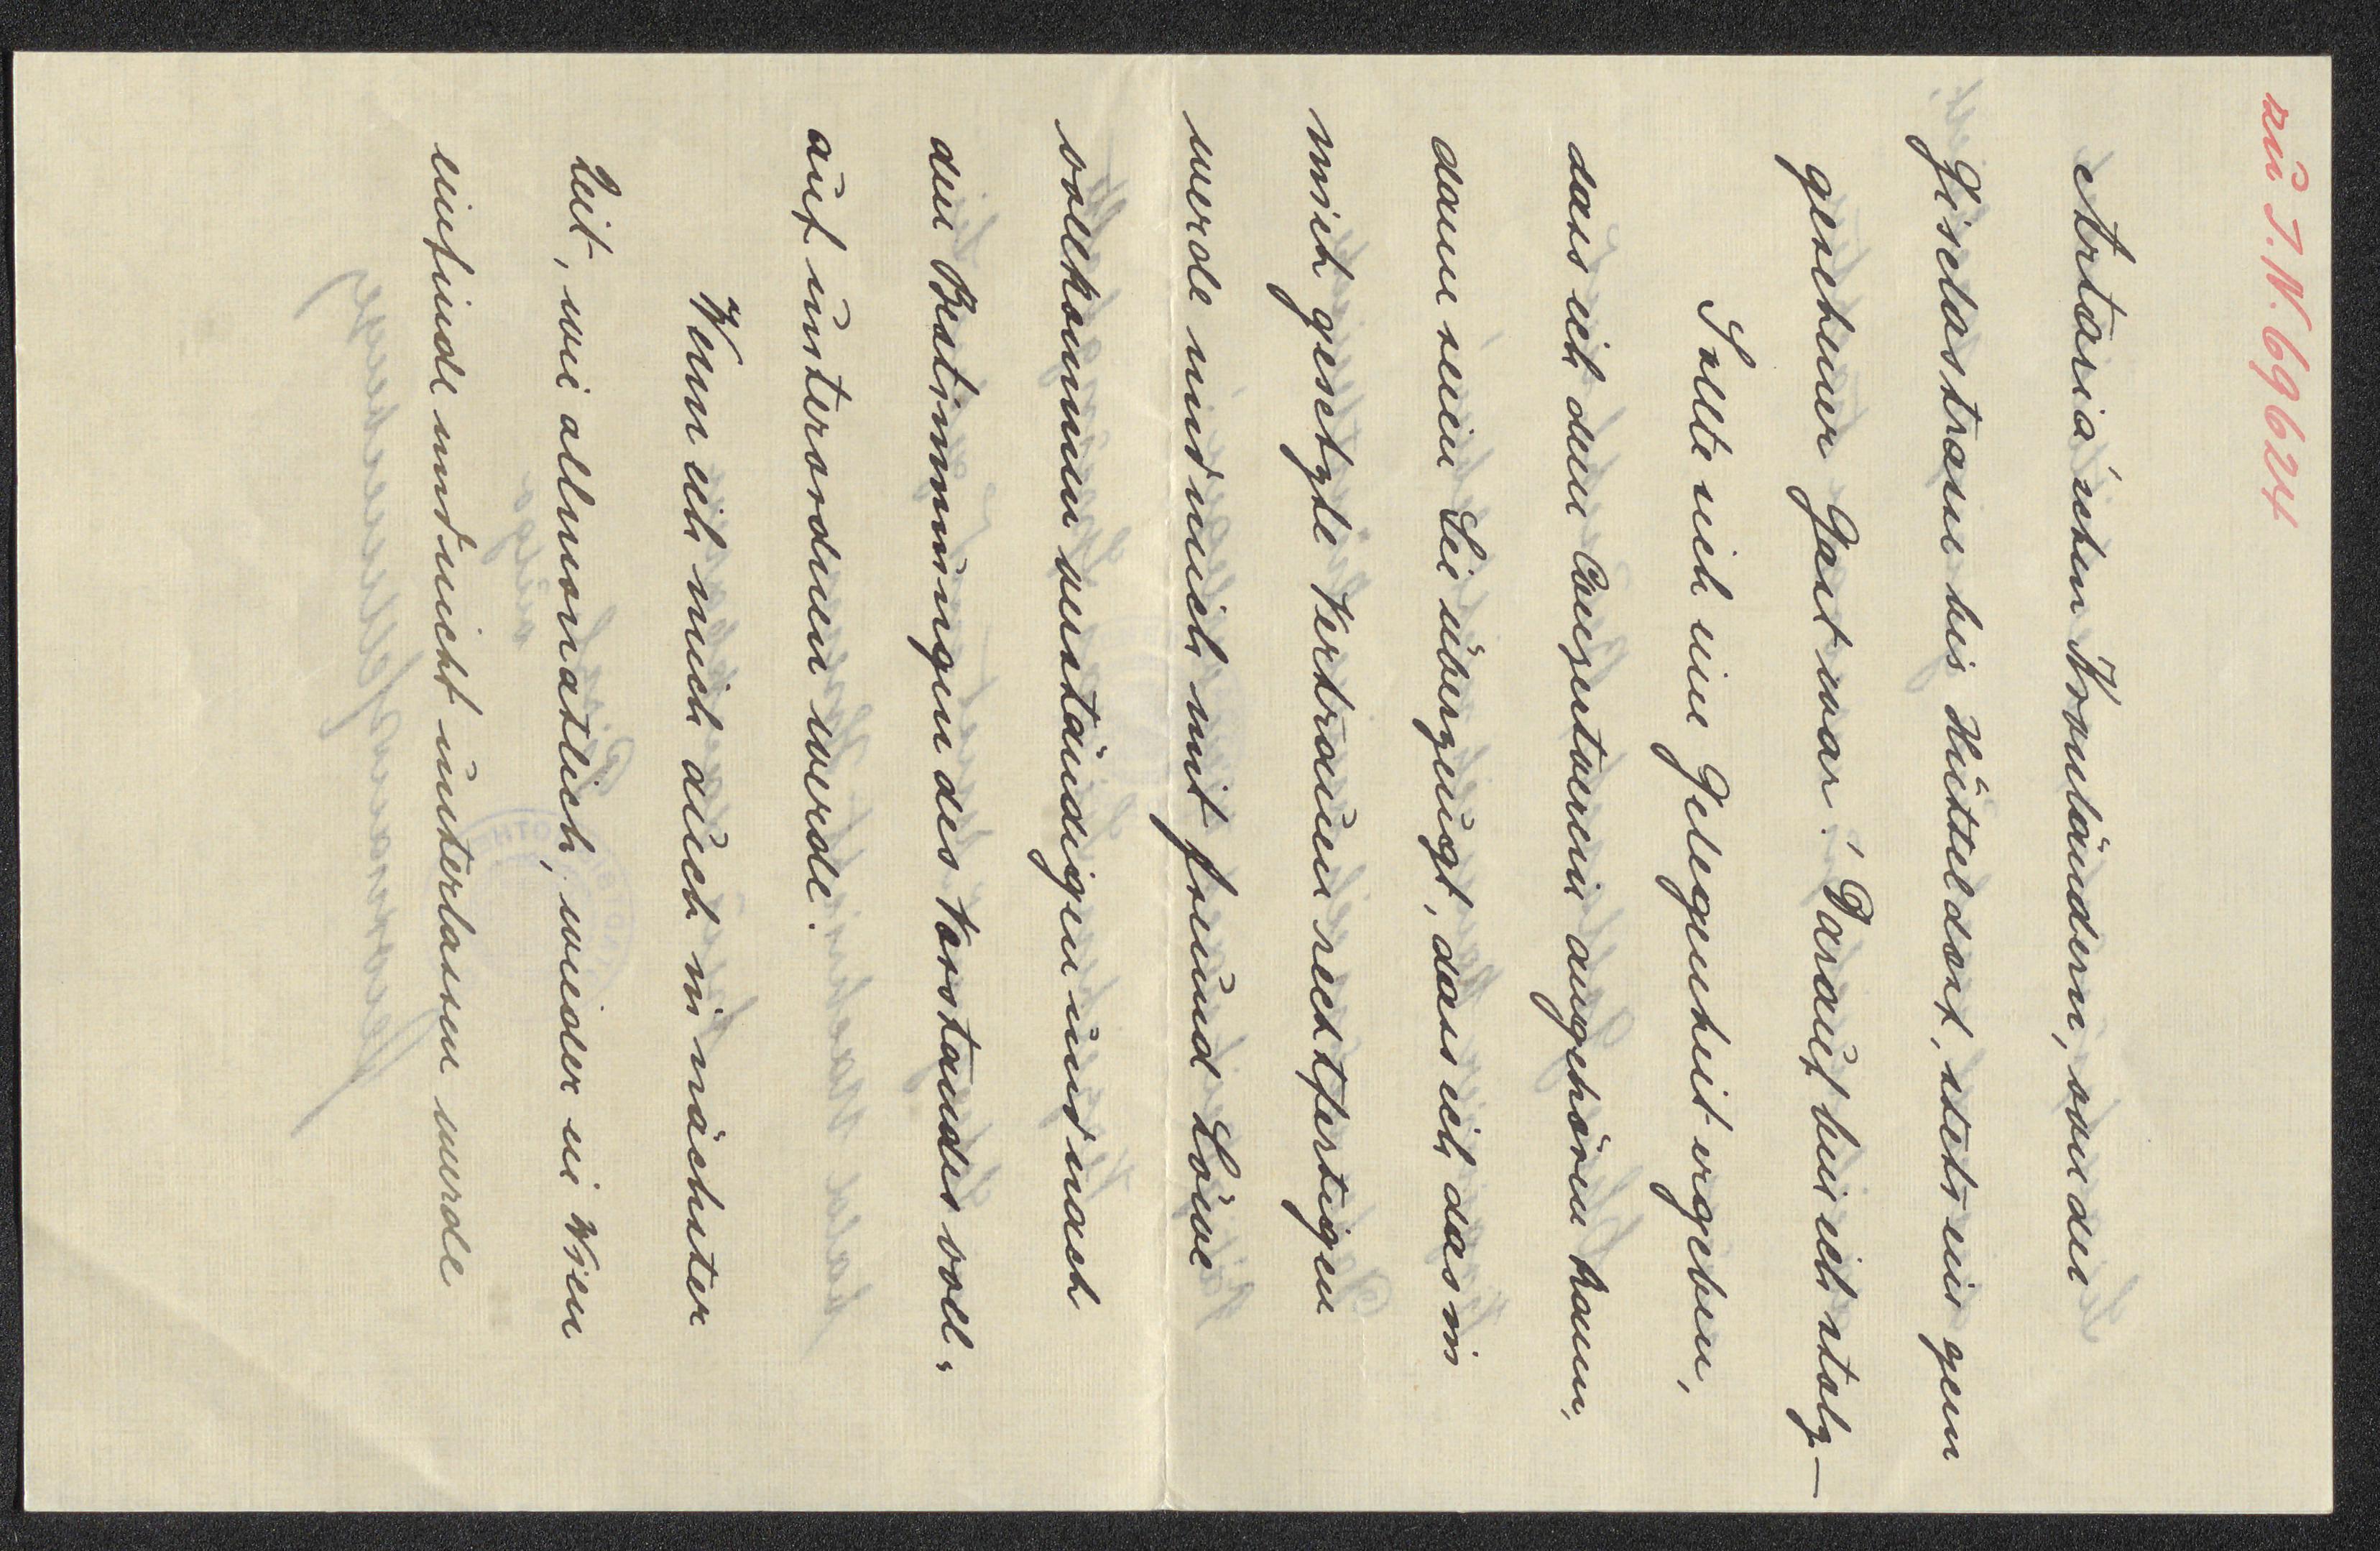 zu I.N. 69624
Artaria'schen Kronländern, von der
Giselastrasse bis Hütteldorf, stets ein gern
gesehener Gast war! Darauf bin ich stolz —
Sollte sich eine Gelegenheit ergeben,
dass ich dem Consortium angehören kann,
dann seien Sie überzeugt, dass ich das in
mich gesetzte Vertrauen rechtfertigen
werde und mich mit Freund Löwe
vollkommen verständigen und nach
den Bestimmungen des Vorstandes voll-
auf unterordnen werde.
Wenn ich mich auch in nächster
Zeit, wie allmonatlich, wieder in Wien
einfinde und nicht unterlassen werde